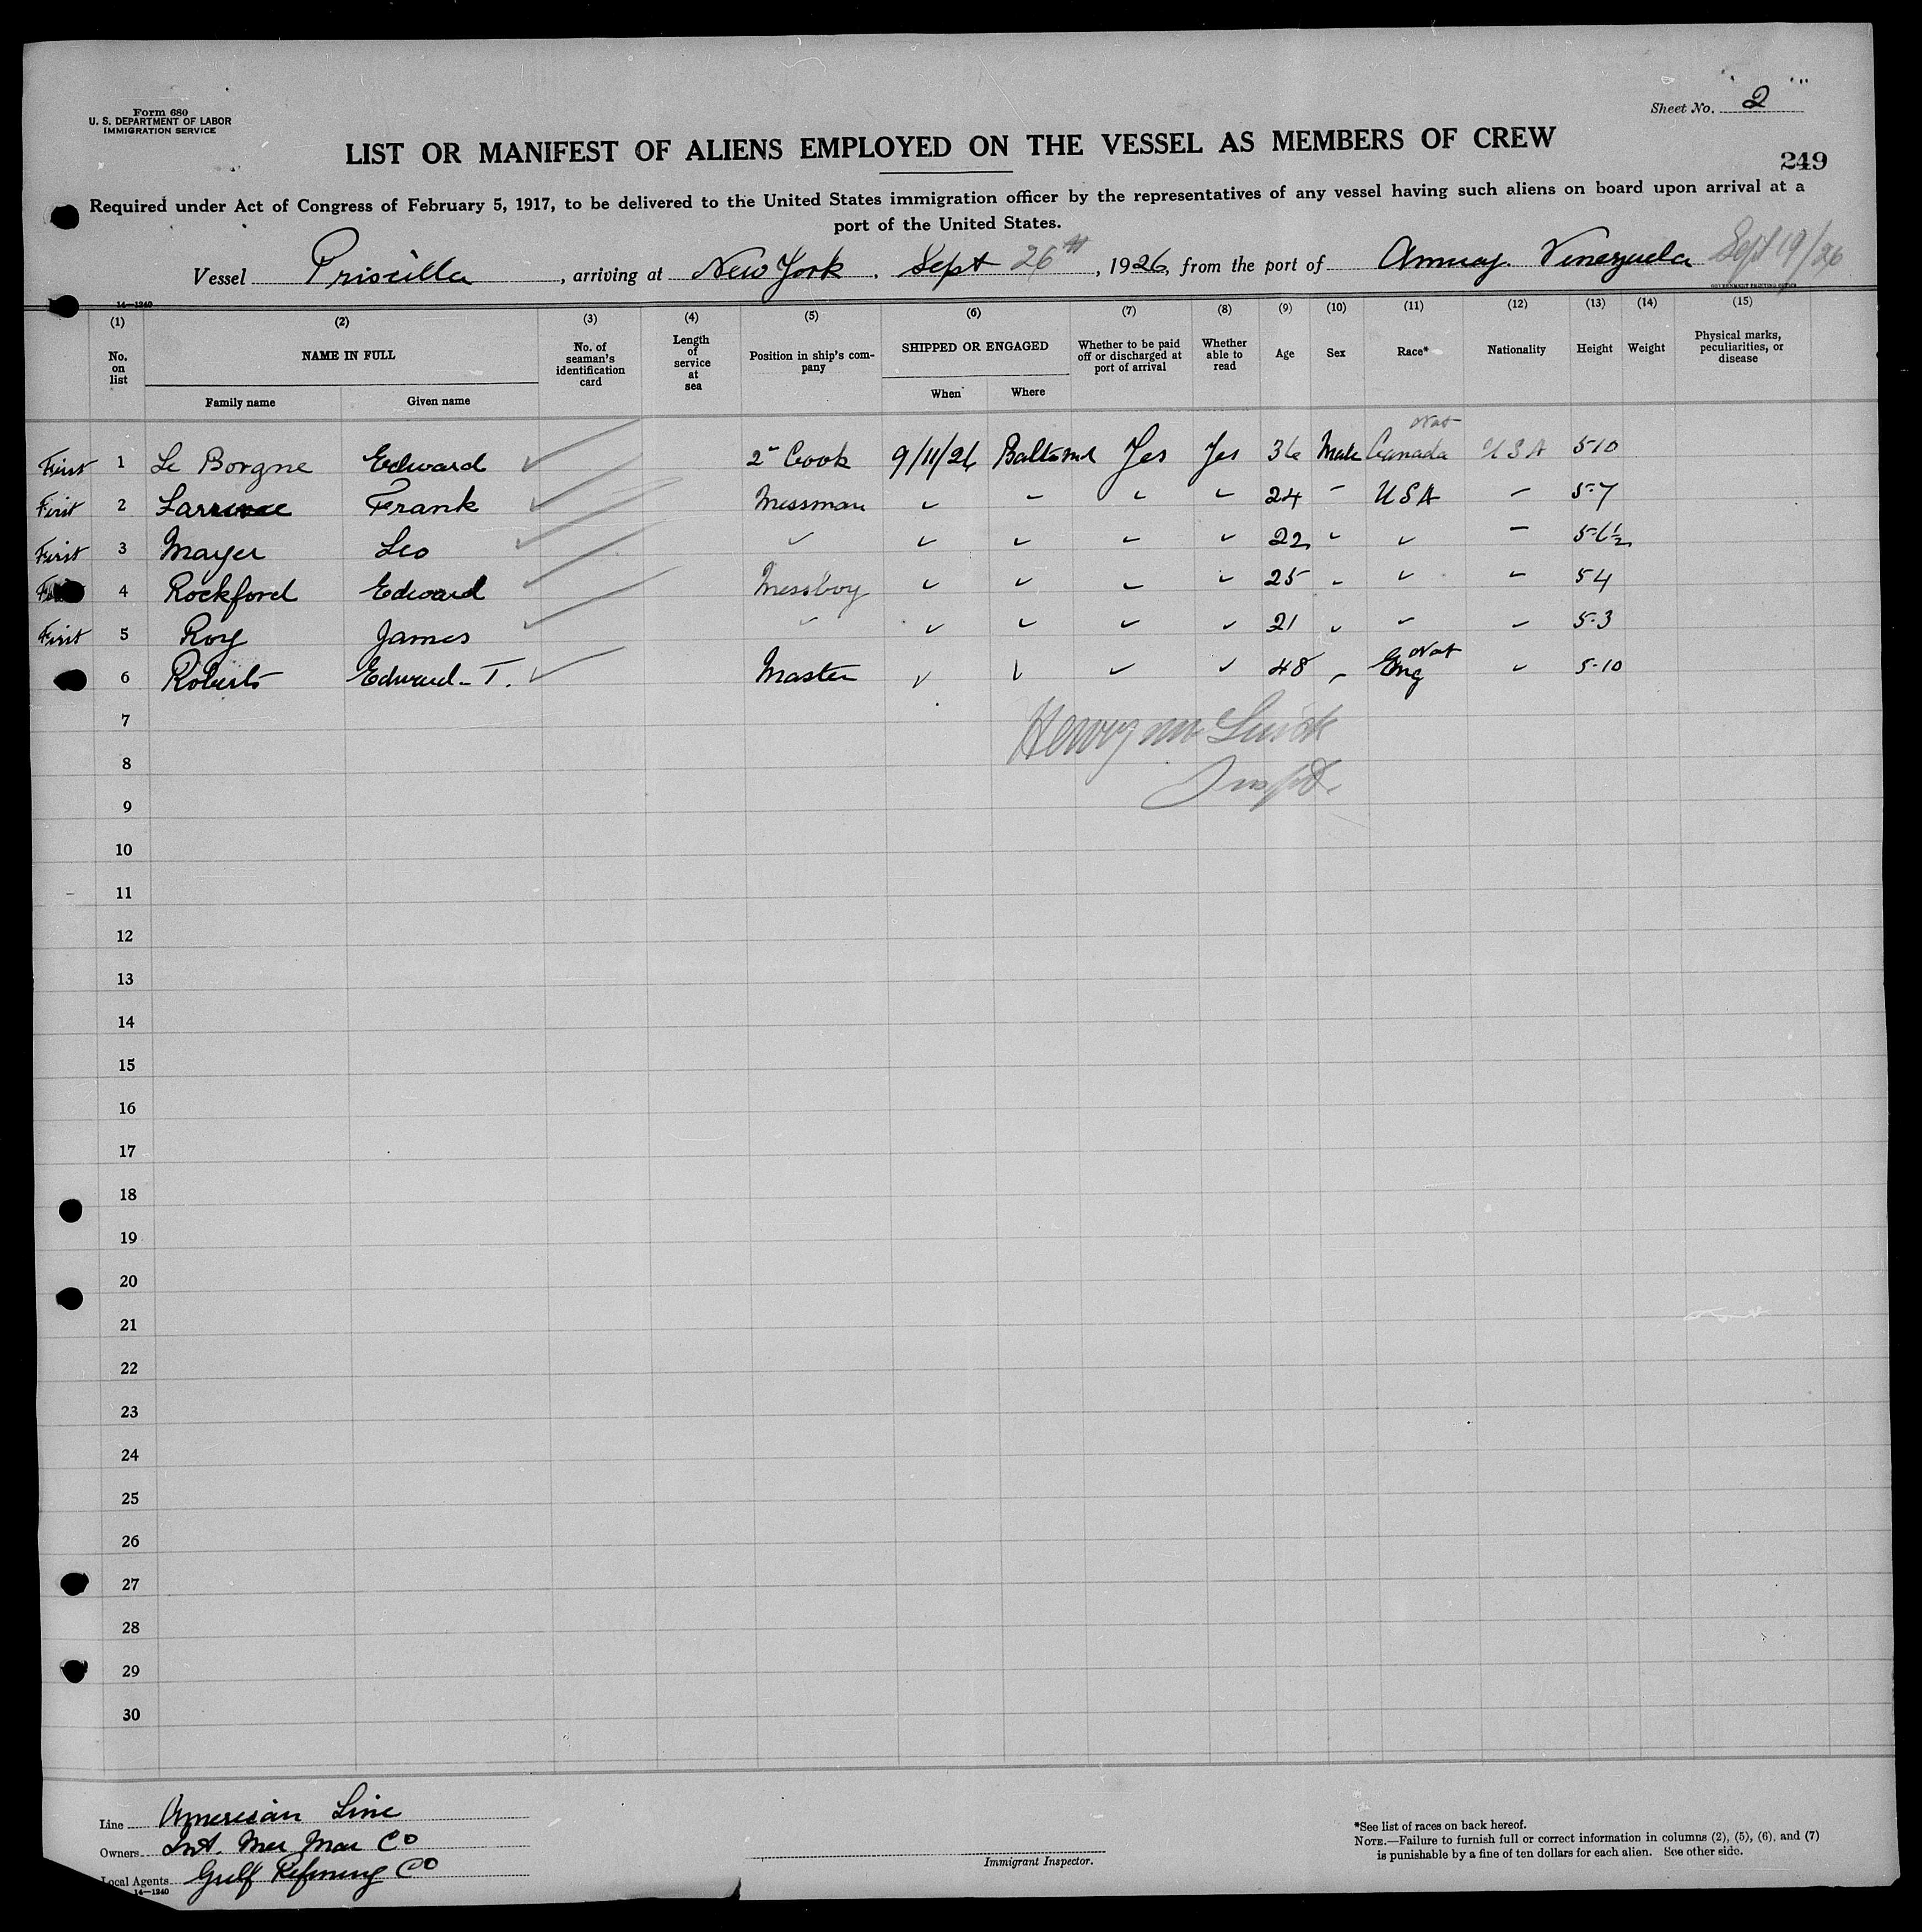 Form 680
U. S. DEPARTMENT OF LABOR
IMMIGRATION SERVICE
Sheet No. 2
LIST OR MANIFEST OF ALIENS EMPLOYED ON THE VESSEL AS MEMBERS OF CREW
249
Required under Act of Congress of February 5, 1917, to be delivered to the United States immigration officer by the representatives of any vessel having such aliens on board upon arrival at a
port of the United States.
Vessel Priscilla, arriving at New York. Sept 26th, 1926, from the port of Amuay. Venezuela Sept 19/26
GOVERNMENT PRINTING OFFICE
14—1240
(1) (2) (3) (4) (5) (6) (7) (8) (9) (10) (11) (12) (13) (14) (15)
No. on list NAME IN FULL No. of seaman's identification card Length of service at sea Position in ship's company SHIPPED OR ENGAGED Whether to be paid off or discharged at port of arrival Whether able to read Age Sex Race* Nationality Height Weight Physical marks, peculiarities, or disease
Family name Given name When Where
Nat
First 1 Le Borgne Edward 2" Cook 9/11/26 Yes Yes 36 Male Canada USA 5-10
First 2 Frank Messman 24 USA 5-7
First 3 Mayer Leo 22 5-6½
4 Rockford Edward Messboy 25 5 4
First 5 Roy James 21 5-3
Nat
6 Roberts Edward T. Master 48 Eng 5-10
7
8
9
10
11
12
13
14
15
16
17
18
19
20
21
22
23
24
25
26
27
28
29
30
Line American Line
Owners Int. Mer Mar Co
Local Agents Gulf Refining Co
14—1240
Immigrant Inspector.
*See list of races on back hereof.
NOTE.—Failure to furnish full or correct information in columns (2), (5), (6), and (7)
is punishable by a fine of ten dollars for each alien. See other side.